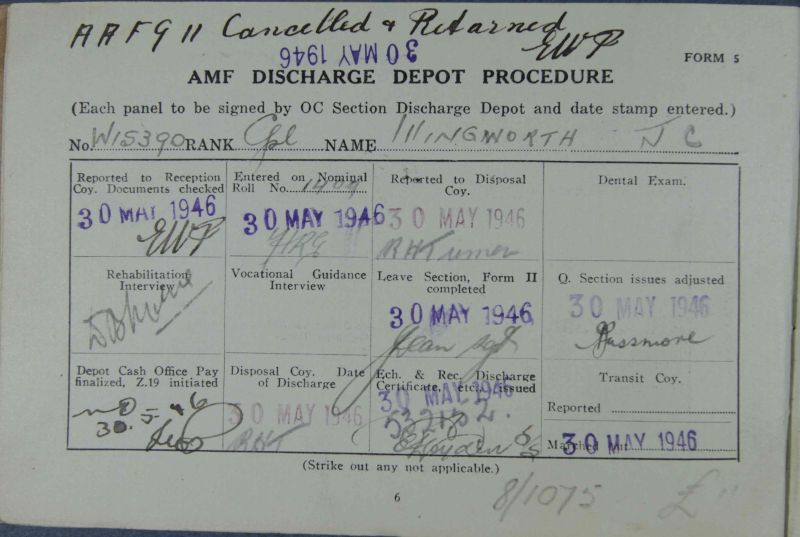 AAFG 11 Cancelled & Returned
30 MAY 1946
EWP
FORM 5
AMF DISCHARGE DEPOT PROCEDURE
(Each panel to be signed by OC Section Discharge Depot and date stamp entered.)
No. W15390 RANK Cpl NAME ILLINGWORTH J C
Reported to Reception
Coy. Documents checked
30 MAY 1946
EWP
Entered on Nominal
Roll No. 1404
30 MAY 1946
Reported to Disposal
Coy.
30 MAY 1946
Dental Exam.
Rehabilitation
Interview
Vocational Guidance
Interview
Leave Section, Form II
completed
30 MAY 1946
Q. Section issues adjusted
30 MAY 1946
Passmore
Depot Cash Office Pay
finalized, Z.19 initiated
30.5.46
Disposal Coy. Date
of Discharge
30 MAY 1946
Ech. & Rec. Discharge
Certificate, etc., issued
30 MAY 1946
Transit Coy.
Reported
Marched out
30 MAY 1946
(Strike out any not applicable.)
6
8/1075